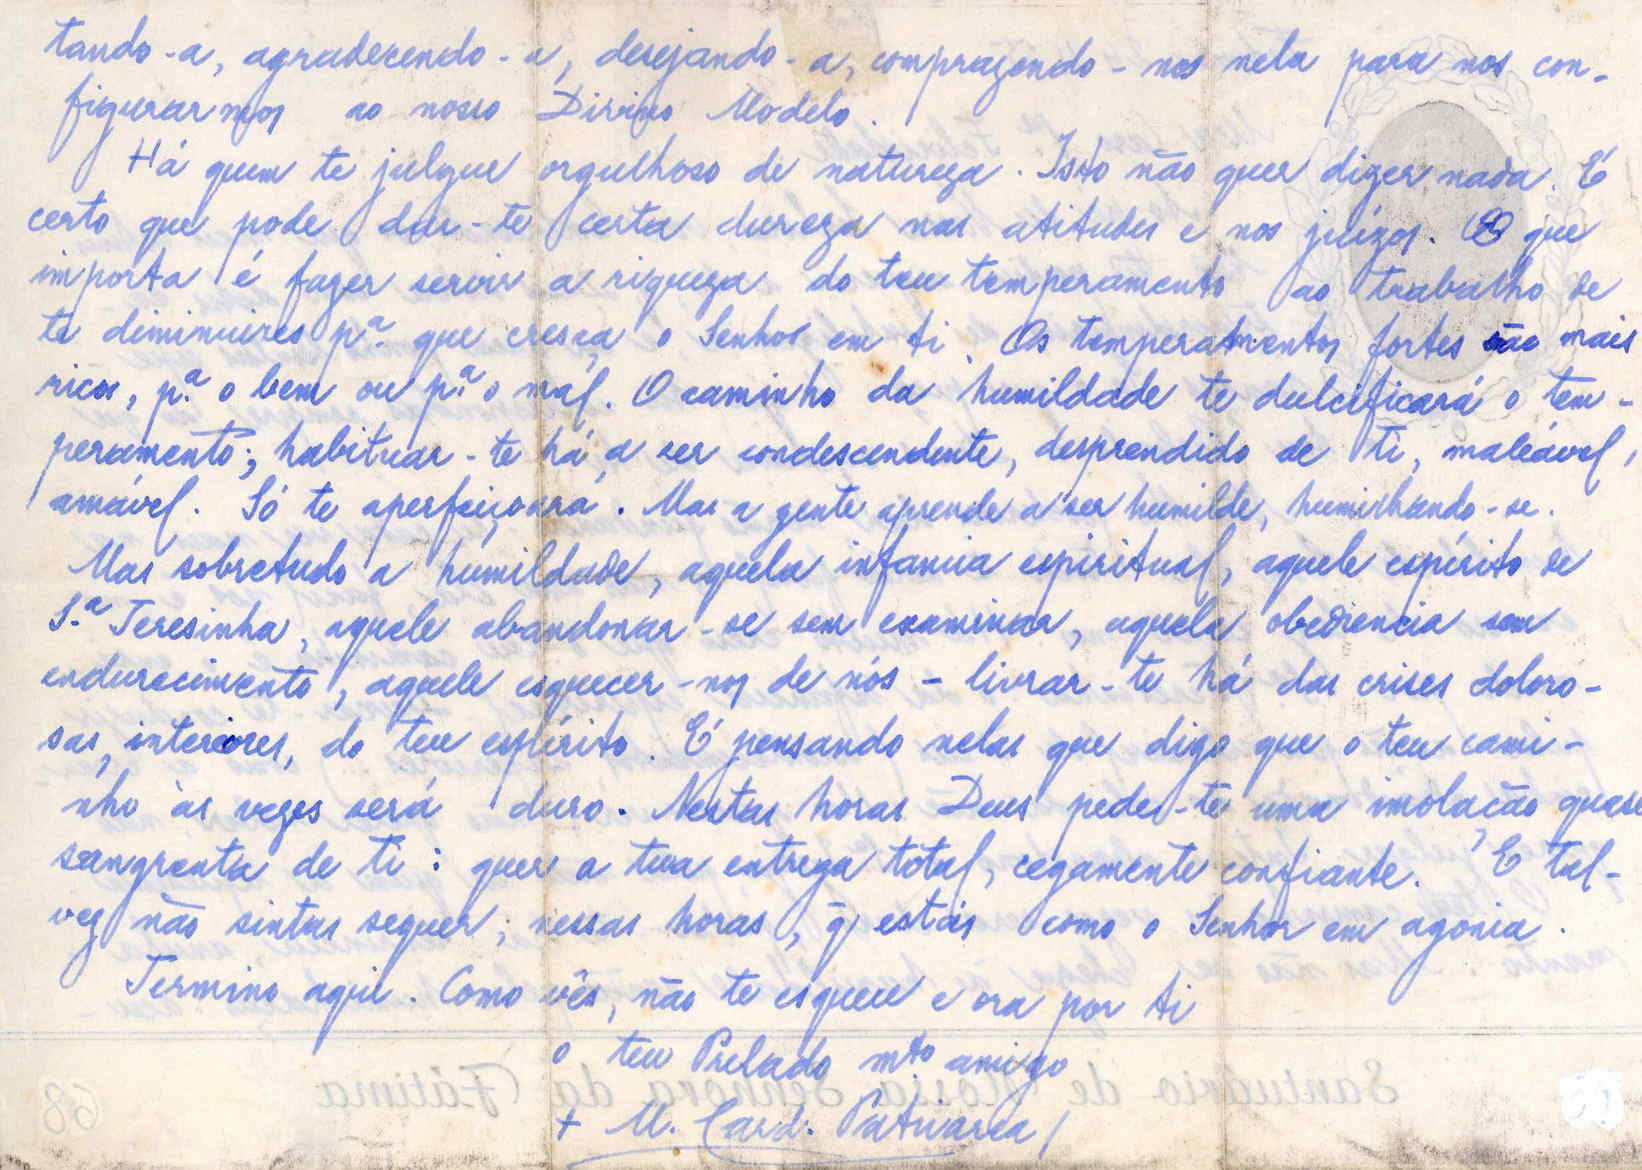 tando-a, agradecendo-a, desejando-a, comprazendo-nos nela para nos con-
figurarmos ao nosso Divino Modelo.
Há quem te julgue orgulhoso de natureza. Isto não quer dizer nada. É
certo que pode dar-te certa dureza nas atitudes e nos juízos. O que
importa é fazer servir a riqueza do teu temperamento ao trabalho de
te diminuires pª. que cresça o Senhor em ti. Os temperamentos fortes são mais
ricos, p.ª o bem ou p.ª o mal. O caminho da humildade te dulcificará o tem-
peramento; habituar-te há a ser condescendente, desprendido de ti, maleável,
amável. Só te aperfeiçoará. Mas a gente aprende a ser humilde, humilhando-se.
Mas sobretudo a humildade, aquela infancia espiritual, aquele espírito de
S.ª Teresinha, aquele abandonar-se sem examinar, aquela obediencia sem
endurecimento, aquele esquecer-nos de nós - livrar-te há das crises doloro-
sas, interiores, do teu espírito. É pensando nelas que digo que o teu cami-
nho às vezes será duro. Nestas horas Deus pede-te uma imolação quase
sangrenta de ti: quer a tua entrega total, cegamente confiante. E tal-
vez não sintas sequer, nessas horas, q̃ estás como o Senhor em agonia.
Termino aqui. Como vês, não te esquece e ora por ti
o teu Prelado mto amigo
+ M. Card. Patriarca
Santuário de Nossa Senhora da Fátima